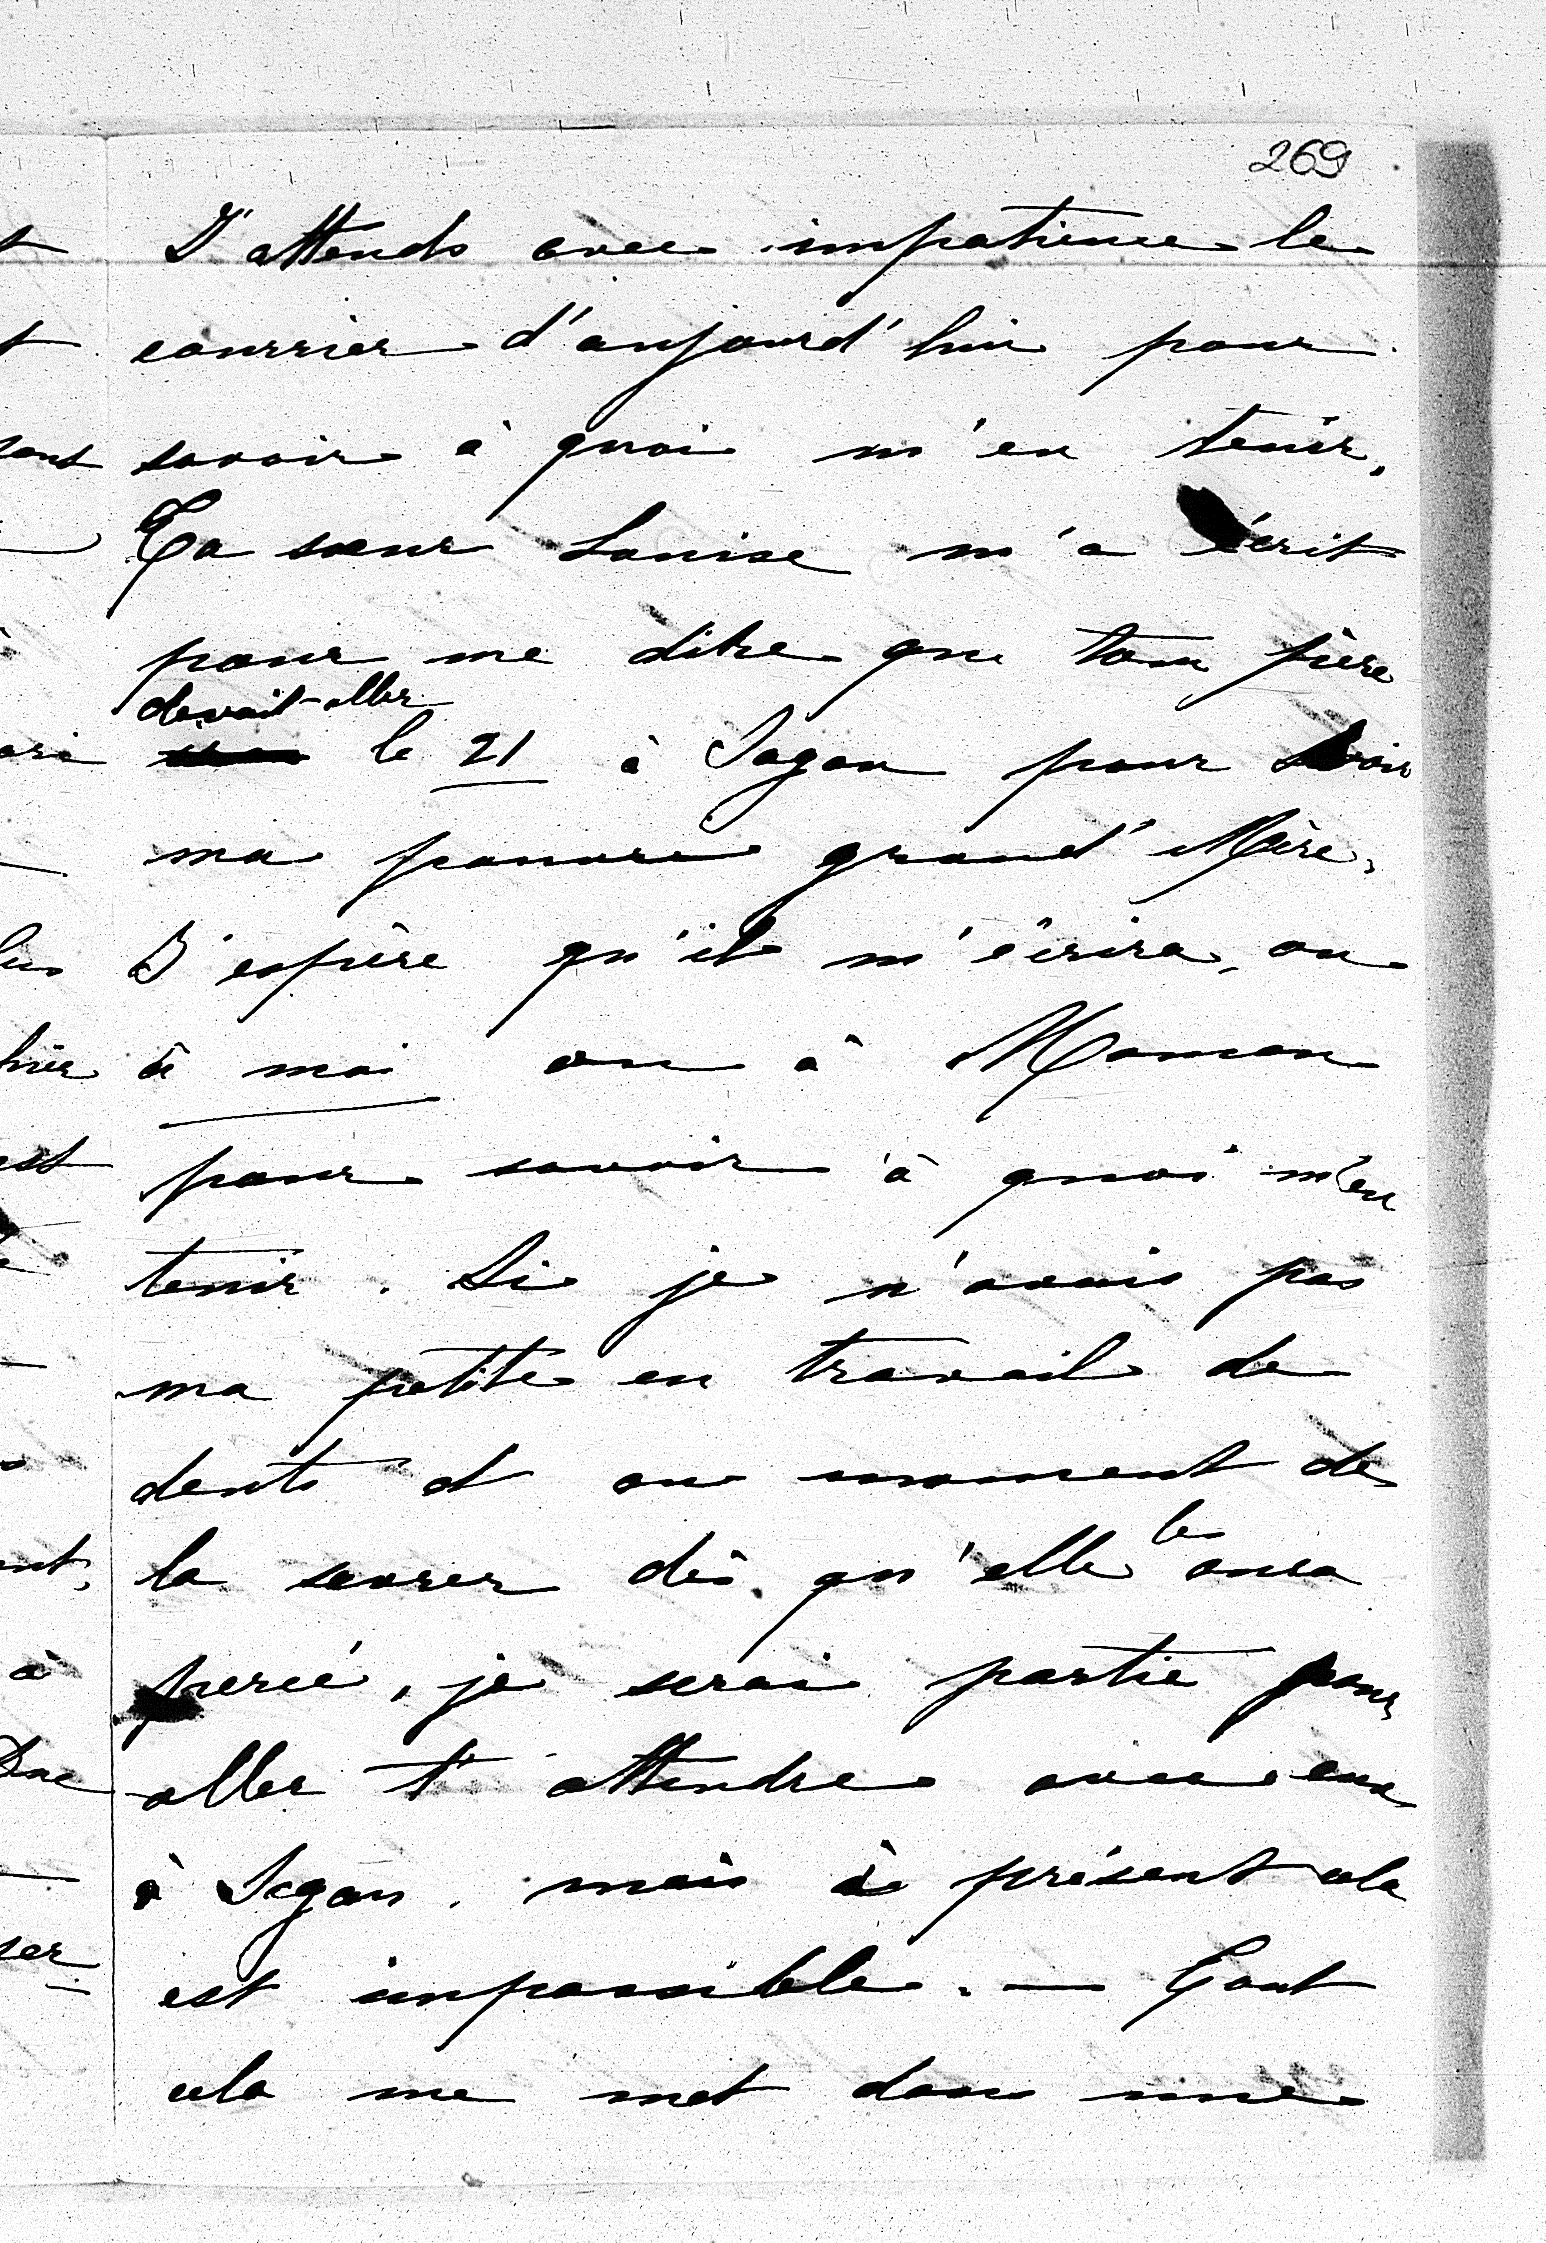 269
J'attends avec impatience le
courrier d'aujourd'hui pour
savoir à quoi m'en tenir.
Ta sœur Louise m'a écrit
pour me dire que ton père
devait aller
le 21 à Sagan pour voir
ma pauvre grand'Mère.
J'espère qu'il m'écrira, ou
à moi ou à Maman
pour savoir à quoi m'en
tenir. Si je n'avais pas
ma petite en travail de
dents et au moment de
la sevrer dès qu'elle les aura
percé, je serai partie pour
aller t'attendre avec eux
à Sagan. mais à présent cela
est impossible. — Tout
cela me met dans une